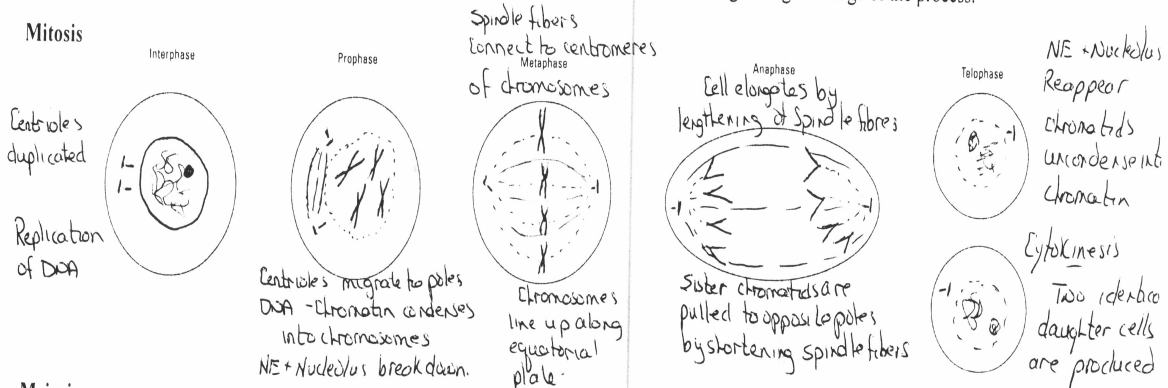 Mitosis
Interphase
Centrioles
duplicated
Replication
of DNA
Prophase
Centrioles migrate to poles
DNA - Chromatin condenses
into chromosomes
NE + Nucleolus break down.
Spindle fibers
Connect to centromeres
Metaphase
of chromosomes
Chromosomes
line up along
equatorial
plate.
Anaphase
Cell elongates by
lengthening of Spindle fibres
Sister chromatids are
pulled to opposite poles
by shortening spindle fibers
Telophase
NE + Nucleolus
Reappear
Chromatids
uncondense int
chromatin
Cytokinesis
Two identica
daughter cells
are produced